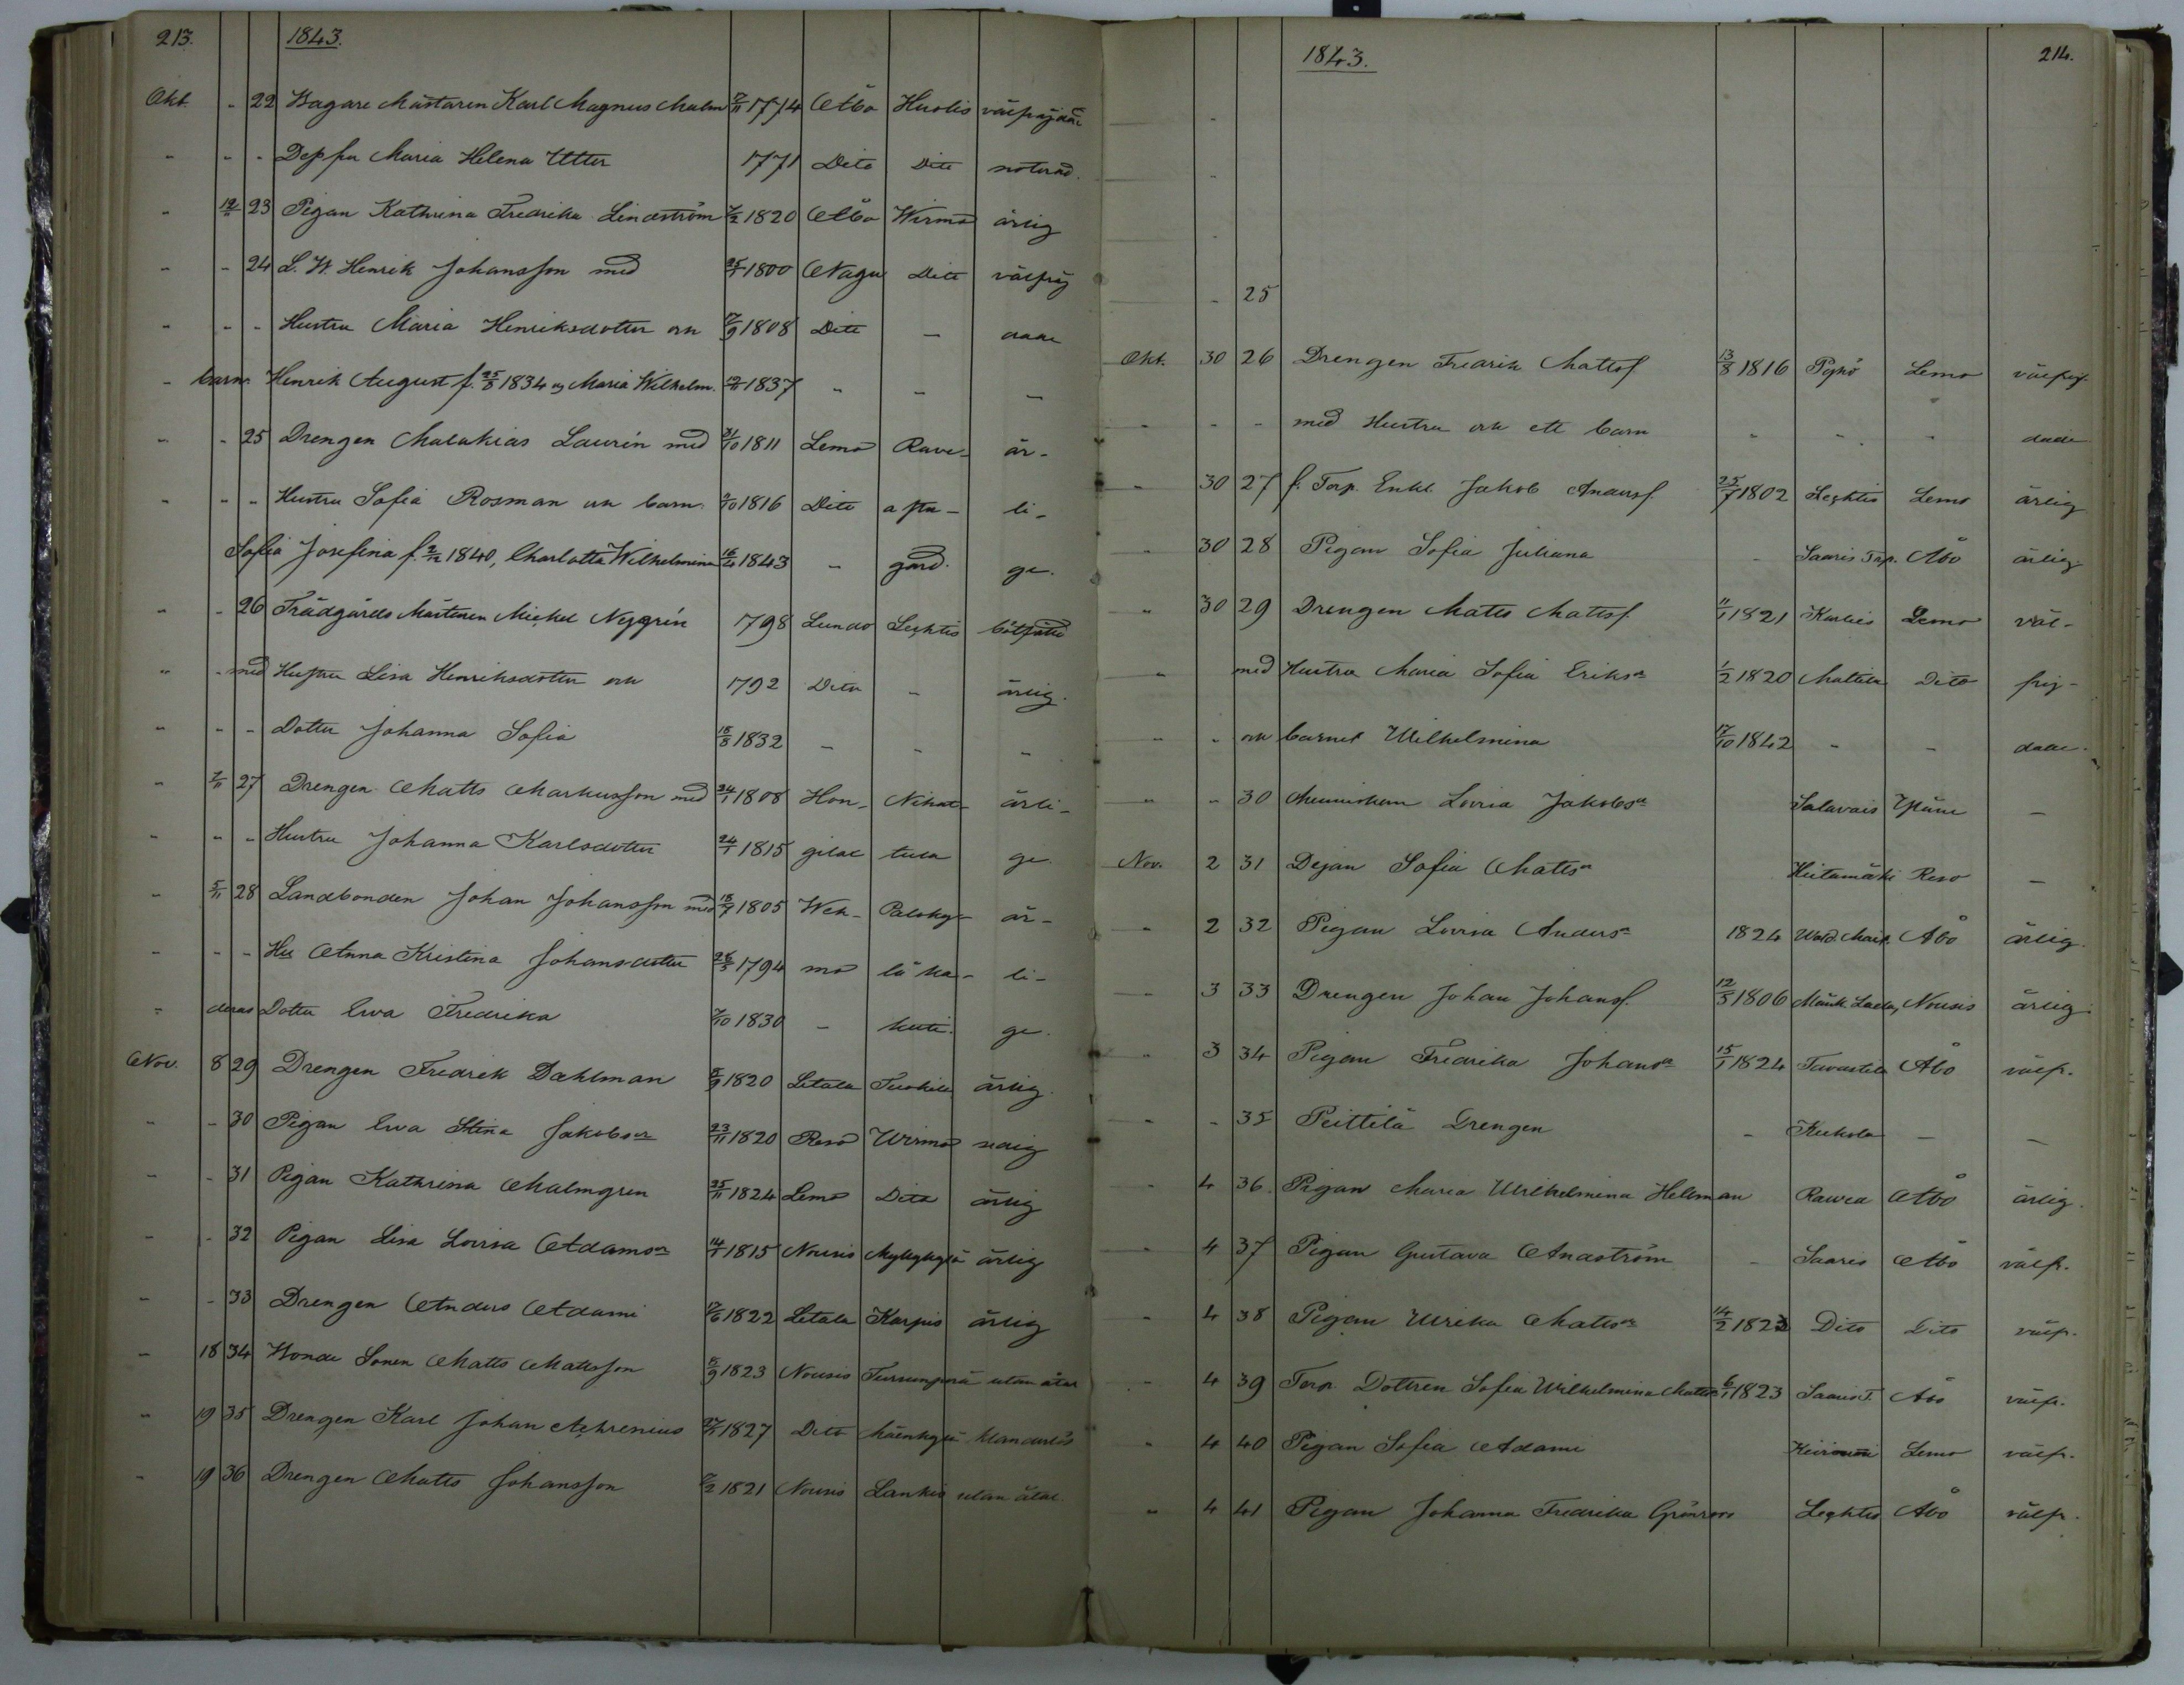 213. 1843.
Okt. - 22 Bagare Mästaren Karl Magnus Malm 1774 Åbo Huolis välfrejdad
" - - Dess fru Maria Helena Utter 1771 Dito Dito noterad.
" 12/11 23 Pigan Kathrina Fredrika Lindström 1820 Åbo Wirmo ärlig
" - 24 L. W. Henrik Johansson med 25/ 1800 Nagu Dito välfrejd
" - - Hustru Maria Henriksdotter och /9 1808 Dito - dade
" barn: Henrik August f. 25/8 1834 o, Maria Wilhelm. 1837 " - -
" - 25 Drengen Malakias Laurén med 31/10 1811 Lemo Rave- är-
" " " Hustru Sofia Rosman och barn: /10 1816 Dito li-
Sofia Josefina f. 2/12 1840, Charlotta Wilhelmina 16/ 1843 - gård. ge.
" - 26 Trädgårds Mästaren Mickel Nygrén 1798 Lundo Lechtis
" - med Hustru Lisa Henriksdotter och 1792 Dito - ärlig.
" - - Dotter Johanna Sofia 18/8 1832 - - -
" /11 27 Drengen Matts Markusson med 24/1 1808 Hon- Nihat- ärli-
" " " Hustru Johanna Karlsdotter 24/1 1815 gilac tula ge.
" 5/11 28 Landbonden Johan Johansson med 18/7 1805 Weh- Paloky- är-
" - - Hu Anna Kristina Johansdotter 26/5 1794 mo lä ka- li-
" deras Dotter Ewa Fredrika /10 1830 - kuti. ge.
Nov. 8 29 Drengen Fredrik Dahlman /9 1820 Letala Tuokila ärlig.
" - 30 Pigan Ewa Stina Jakobsdr 23/11 1820 Reso Wirmo sedig
" - 31 Pigan Kathrina Malmgren 25/11 1824 Lemo Dito ärlig
" - 32 Pigan Lisa Lovisa Adamsdr 14/1 1815 Nousis Mylykylä ärlig
" - 33 Drengen Anders Adami 1822 Letala Karjus ärlig
" 18 34 Bonde Sonen Matts Mattsson 8/9 1823 Nousis Tursunperä utan åtal
" 19 35 Drengen Karl Johan Achrenius 1827 Dito klanderlös
" 19 36 Drengen Matts Johansson /2 1821 Nousis Lankis utan åtal.
1843. 214.
- 25
Okt. 30 26 Drengen Fredrik Mattsf. 13/8 1816 Pojkö Lemo välfrejd.
" - - med Hustru och ett barn - - - dade
" 30 27 f. Torp. Enkl. Jakob Andersf. 25/7 1802 Lechtis Lemo ärlig
" 30 28 Pigan Sofia Juliana - Saaris Torp. Åbo ärlig.
" 30 29 Drengen Matts Mattsf. 11/1 1821 Kurkis Lemo väl-
" med Hustru Maria Sofia Eriksdr 1/2 1820 Mattila Dito frej-
" - och barnet Wilhelmina 17/10 1842 - - dade.
" - 30 Menniskan Lovisa Jakobsdr Salavais Ypäne -
Nov. 2 31 Dejan Sofia Mattsdr Hiitamäki Reso -
" 2 32 Pigan Lovisa Andersdr 1824 Wald. Mais. Åbo ärlig.
" 3 33 Drengen Johan Johansf. 12/3 1806 Nousis ärlig.
" 3 34 Pigan Fredrika Johansdr 15/1 1824 Tavastila Åbo välfr.
" - 35 Peittilä Drengen - Kukola - -
" 4 36. Pigan Maria Wilhelmina Hellman Rawea Åbo ärlig.
" 4 37 Pigan Gustava Andström - Saaris Åbo välfr.
" 4 38 Pigan Ulrika Mattsdr 14/2 1823 Dito Dito välfr.
" 4 39 Torp. Dottren Sofia Wilhelmina Mattsdr 6/1 1823 Saaris T. Åbo välfr.
" 4 40 Pigan Sofia Adami Lemo välfr.
" 4 41 Pigan Johanna Fredrika Grönroos Lechtis Åbo välfr.